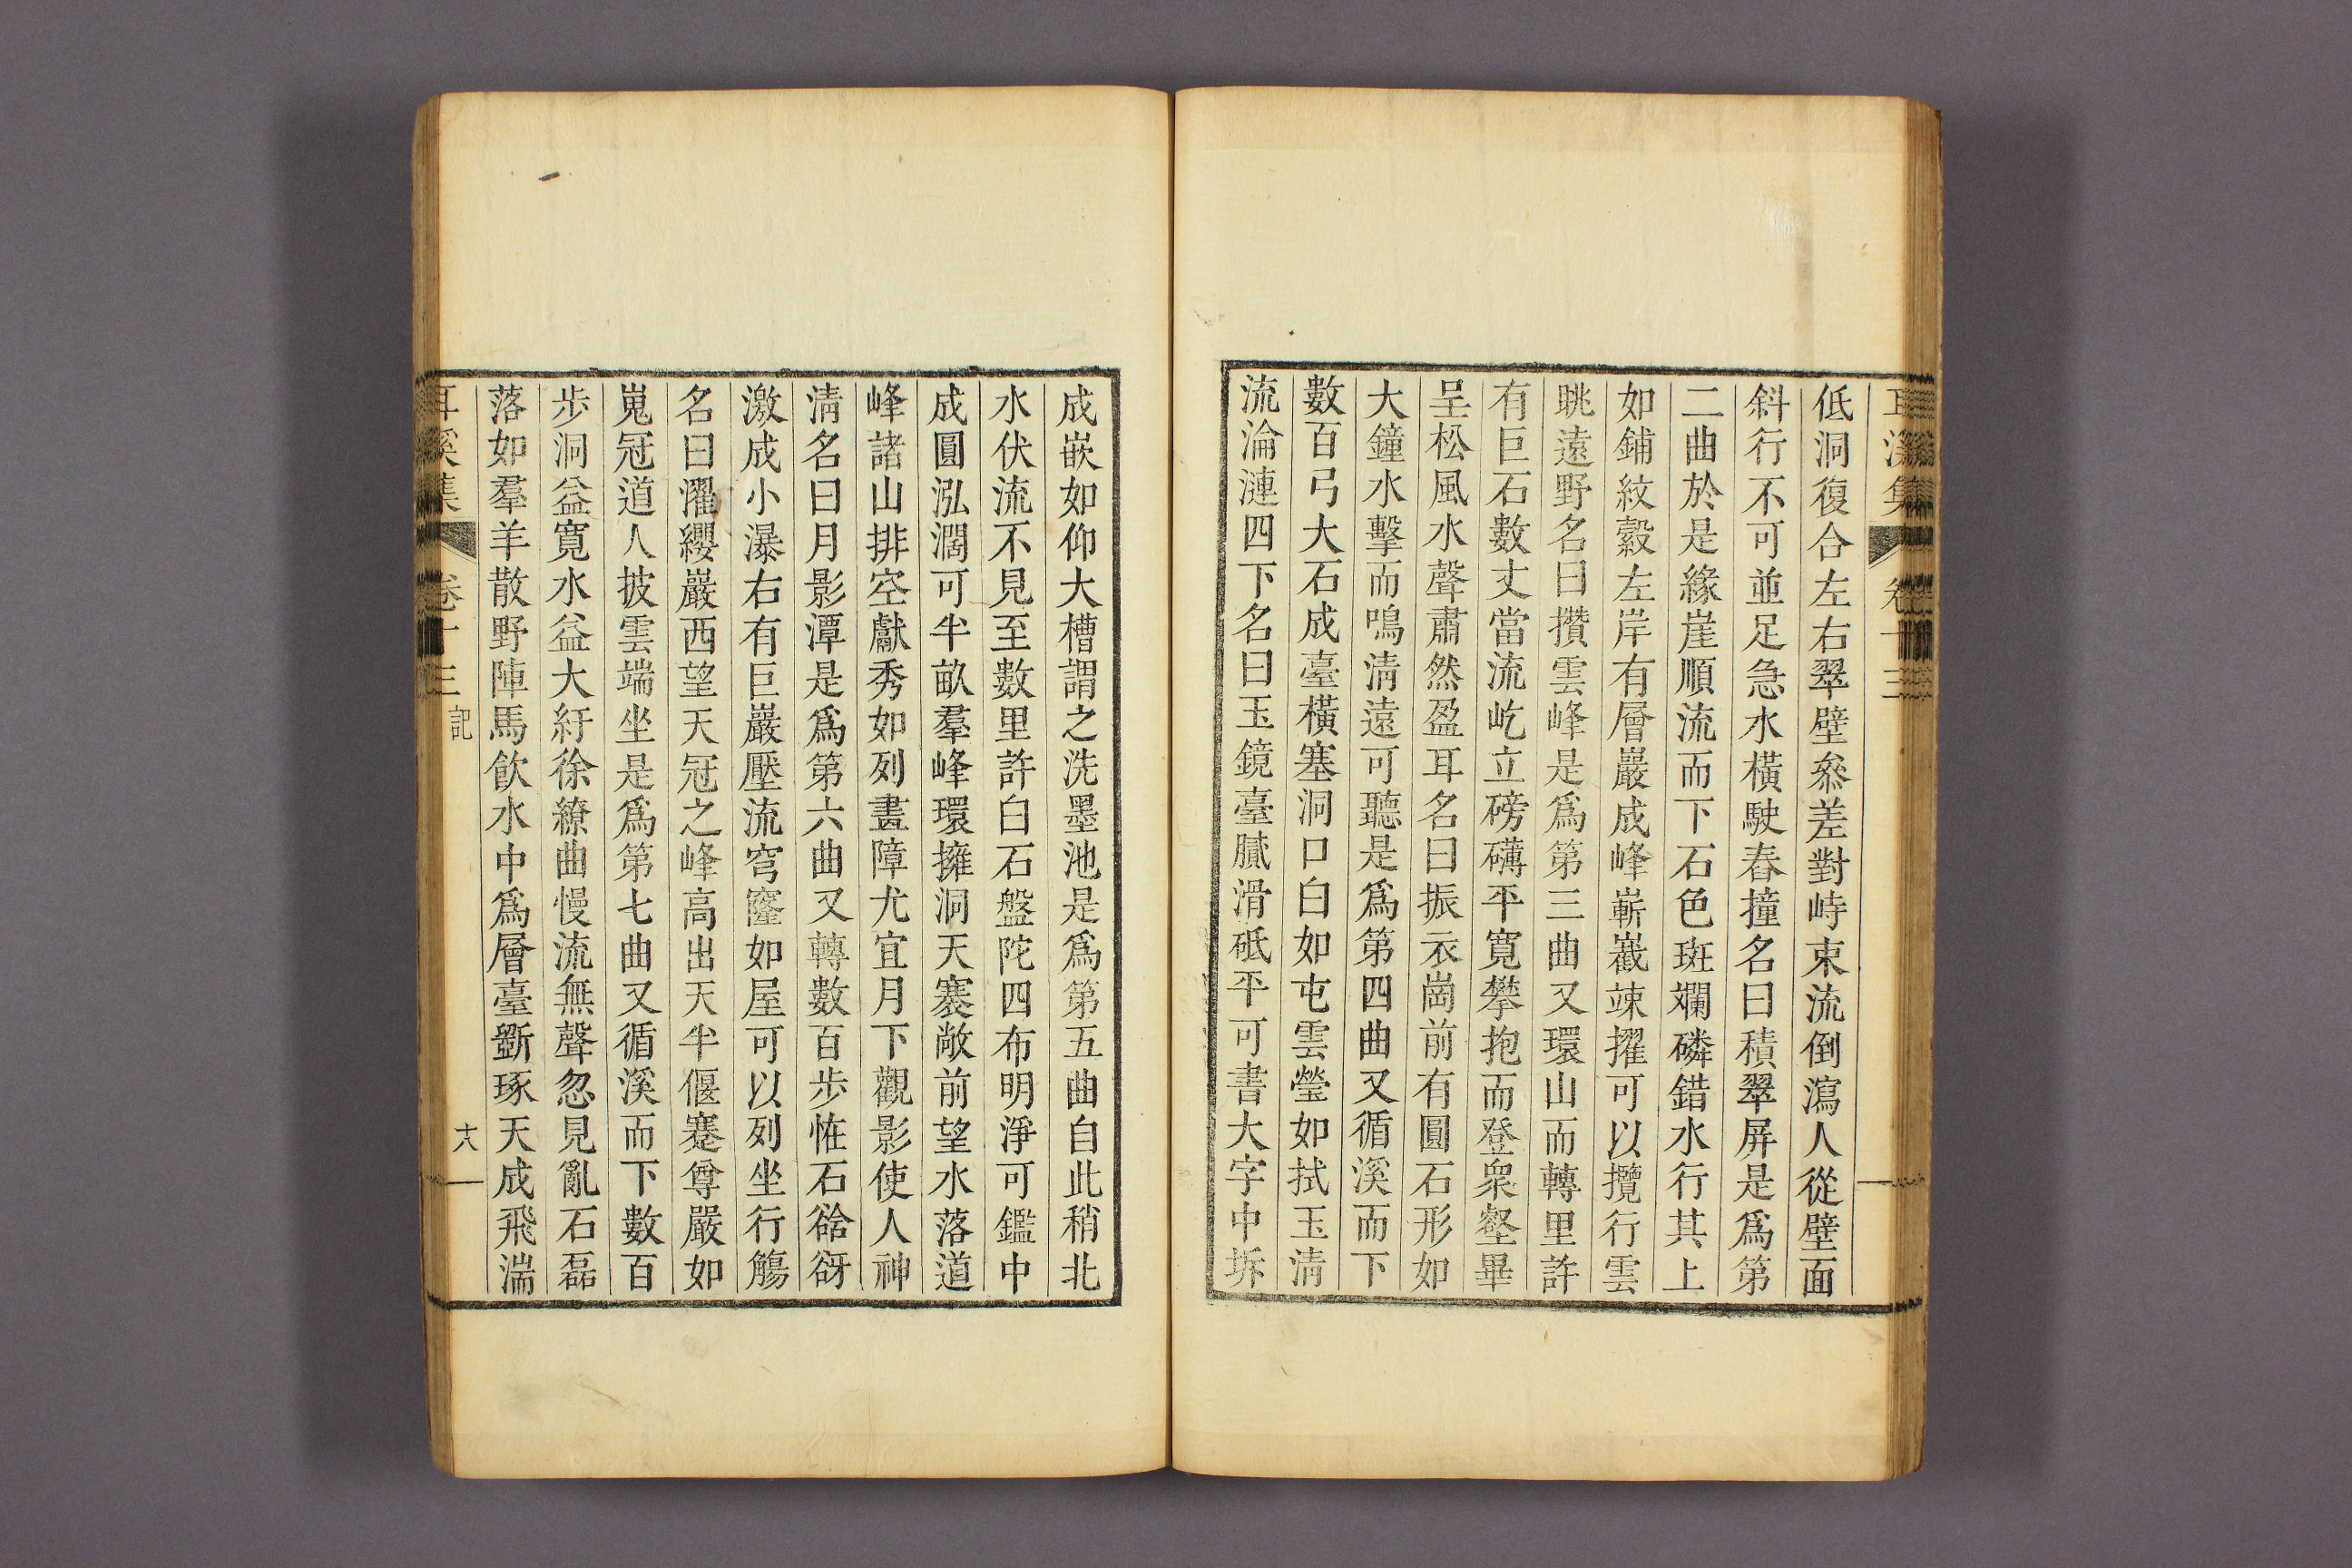 耳溪集 卷十三
低洞復合左右翠壁叅差對峙束流倒瀉人從壁面
斜行不可並足急水橫駛舂撞名曰積翠屏是爲第
二曲於是緣崖順流而下石色斑斕磷錯水行其上
如鋪紋縠左岸有層巖成峰嶄嶻竦擢可以攬行雲
眺遠野名曰攢雲峰是爲第三曲又環山而轉里許
有巨石數丈當流屹立磅礴平寬攀抱而登衆壑畢
呈松風水聲肅然盈耳名曰振衣崗前有圓石形如
大鐘水擊而鳴淸遠可聽是爲第四曲又循溪而下
數百弓大石成臺橫塞洞口白如屯雲瑩如拭玉淸
流淪漣四下名曰玉鏡臺膩滑砥平可書大字中坼
成嵌如仰大槽謂之洗墨池是爲第五曲自此稍北
水伏流不見至數里許白石盤陀四布明淨可鑑中
成圓泓濶可半畝羣峰環擁洞天褰敞前望水落道
峰諸山排空獻秀如列畫障尤宜月下觀影使人神
淸名曰月影潭是爲第六曲又轉數百步恠石谽谺
激成小瀑右有巨巖壓流穹窿如屋可以列坐行觴
名曰濯纓巖西望天冠之峰高出天半偃蹇尊嚴如
嵬冠道人披雲端坐是爲第七曲又循溪而下數百
步洞益寬水益大紆徐繚曲慢流無聲忽見亂石磊
落如羣羊散野陣馬飮水中爲層臺斵琢天成飛湍
耳溪集 卷十三 記 十八